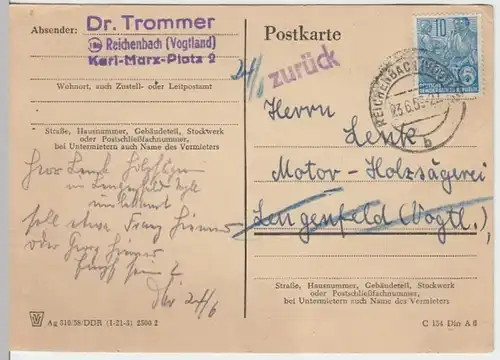 Absender:
Dr. Trommer
Reichenbach (Vogtland)
Karl-Marx-Platz 2
Wohnort, auch Zustell- oder Leitpostamt
Straße, Hausnummer, Gebäudeteil, Stockwerk
oder Postschließfachnummer,
bei Untermietern auch Name des Vermieters
Herr Lenk
in Lengenfeld Vgtl
unbekannt
soll etwa Franz
oder Georg
sein?
24/6
Ag 510/58/DDR (1-21-3) 2500 2
Postkarte
24/6
zurück
10
REICHENBACH (VOGTL)
23.6.59
b
Herrn
Lenk
Motor-Holzsägerei
Lengenfeld (Vogtl.)
Straße, Hausnummer, Gebäudeteil, Stockwerk
oder Postschließfachnummer,
bei Untermietern auch Name des Vermieters
C 154 Din A 6